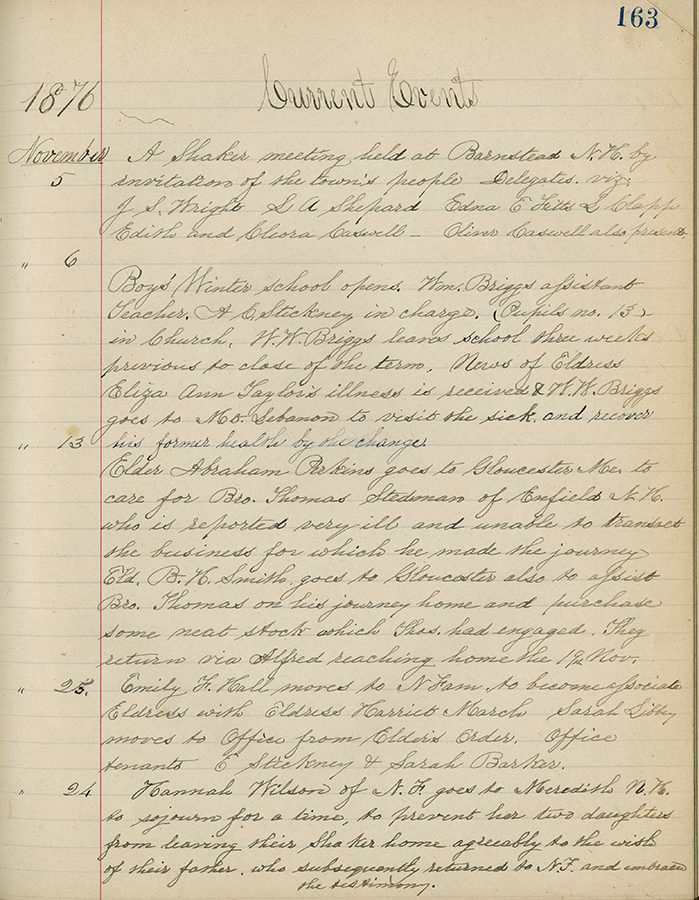 163
1876 Current Events
November A Shaker meeting held at Barnstead N.H. by
5 invitation of the town's people Delegates. viz;
J S. Wright L A Shepard Edna E Fitts L Clapp
Edith and Cleora Caswell – Oliver Caswell also present.
" 6
Boys' Winter school opens. Wm. Briggs assistant
Teacher. A E Stickney in charge. (Pupils no. 13)
in Church. W.W. Briggs leaves school three weeks
previous to close of the term. News of Eldress
Eliza Ann Taylor's illness is received & W.W. Briggs
goes to Mt. Lebanon to visit the sick. and recover
" 13 his former health by the change.
Elder Abraham Perkins goes to Gloucester Me. to
care for Bro. Thomas Stedman of Enfield N.H.
who is reported very ill and unable to transact
the business for which he made the journey
Eld. B. H. Smith. goes to Gloucester also to assist
Bro. Thomas on his journey home and purchase
some neat stock which Thos. had engaged. They
return via Alfred reaching home the 19th Nov.
" 25. Emily F. Hall moves to N Fam. to become associate
Eldress with Eldress Harriet March Sarah Libby
moves to Office from Elder's Order. Office
tenants E Stickney & Sarah Barker.
" 24 Hannah Wilson of N.F. goes to Meredith N.H.
to sojourn for a time, to prevent her two daughters
from leaving their Shaker home agreeably to the wish
of their father, who subsequently returned to N.F. and embrace
the testimony.